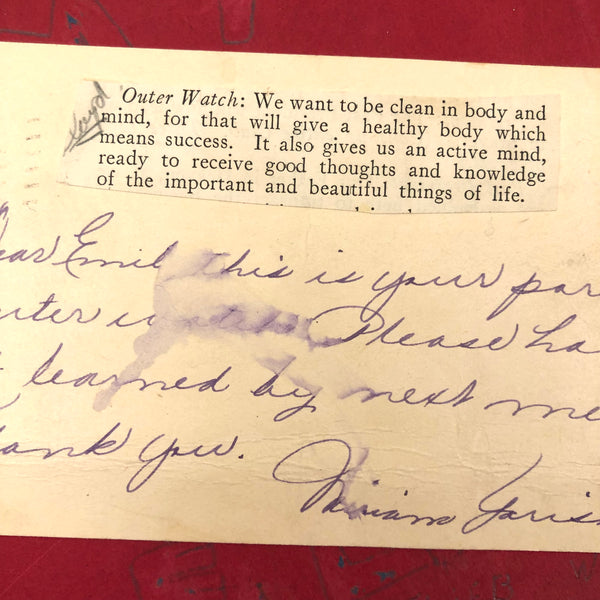 Outer Watch: We want to be clean in body and
mind, for that will give a healthy body which
means success. It also gives us an active mind,
ready to receive good thoughts and knowledge
of the important and beautiful things of life.
Dear Emil this is your par
uter watch. Please ha
learned by next me
ank you.
Miriam Yaris